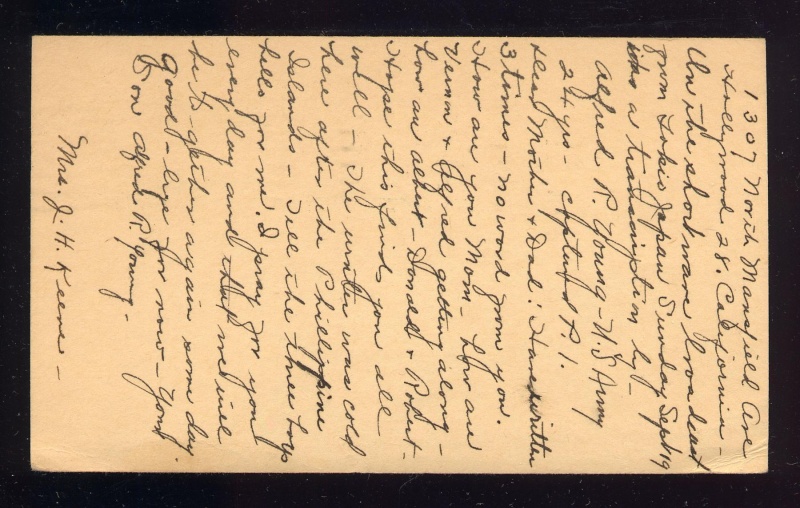 1307 North Mansfield Ave
Hollywood 28. California -
On the shortwave broadcast
from Tokio Japan Sunday Sept 19
was a transcription by -
Alfred P. Young - U.S Army
24 yrs - captured P. I.
Dear Mother & Dad: Have written
3 times - no word from you.
How are you Mom - How are
Vernon & Alfred getting along -
how are Albert - Donald & Robert -
Hope this finds you all
well - The winter was cold
here after the Phillippine
Islands - Tell the three boys
hello for me. I pray for you
every day and that we will
be to-gether again some day.
Good-bye for now - Your
Son Alfred P. Young.
Mrs. J. H. Keene -